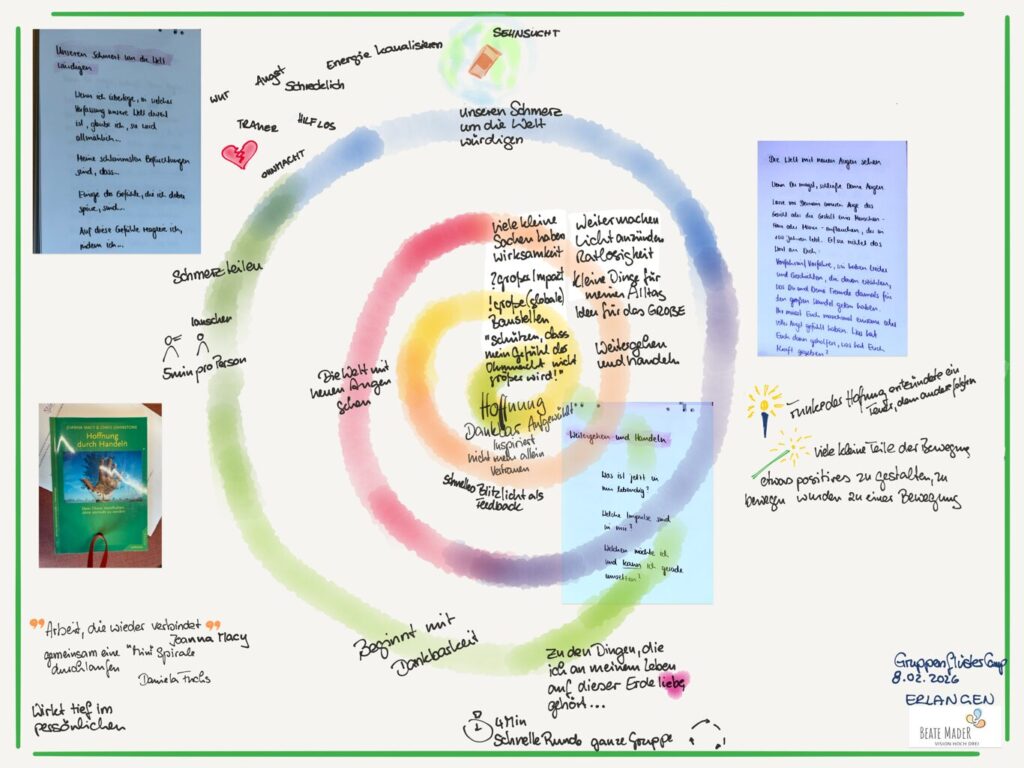 Unseren Schmerz um die Welt
würdigen
Wenn ich überlege, in welcher
Verfassung unsere Welt derzeit
ist, glaube ich, sie wird
allmählich...
Meine schlimmsten Befürchtungen
sind, dass...
Einige der Gefühle, die ich dabei
spüre, sind...
Auf diese Gefühle reagiere ich,
indem ich...
WUT
Angst
Schrecklich
Energie kanalisieren
SEHNSUCHT
TRAUER
HILFLOS
OHNMACHT
Unseren Schmerz
um die Welt
würdigen
Die Welt mit neuen Augen sehen
Wenn Du magst, schließe Deine Augen
Lasse vor Deinem inneren Auge das
Gesicht oder die Gestalt eines Menschen -
Frau oder Mann - auftauchen, der in
100 Jahren lebt.
Wort an Euch:
den großen Wandel getan haben.
Ihr müsst Euch manchmal einsam oder
voller Angst gefühlt haben. Was hat
Euch dann geholfen, was hat Euch
Kraft gegeben?
Schmerz teilen
lauschen
5min pro Person
Die Welt mit
neuen Augen
sehen
Viele kleine
Sachen haben
wirksamkeit
? großer Impact
! große (globale)
Baustellen
"schützen, dass
mein Gefühl der
Ohnmacht nicht
größer wird!"
Weitermachen
Licht anzünden
Ratlosigkeit
Kleine Dinge für
meinen Alltag
Ideen für das GROßE
Weitergehen
und handeln
Hoffnung
Dankbar Aufgewühlt
Inspiriert
nicht mehr allein
Vertrauen
schnelles Blitzlicht als
Feedback
Weitergehen und Handeln
Was ist jetzt in
mir lebendig?
Welche Impulse sind
in mir?
Welchen möchte ich
und kann ich gerade
umsetzen?
Funke der Hoffnung entzündete ein
Feuer, dem andere folgten
viele kleine Teile der Bewegung
etwas positives zu gestalten, zu
bewegen wurden zu einer Bewegung
JOANNA MACY & CHRIS JOHNSTONE
Hoffnung
durch Handeln
"Arbeit, die wieder verbindet"
Joanna Macy
gemeinsam eine "Mini" Spirale
durchlaufen
Daniela Fuchs
Wirkt tief im
persönlichen
Beginnt mit
Dankbarkeit
Zu den Dingen, die
ich an meinem Leben
auf dieser Erde liebe,
gehört...
4 Min
Schnelle Runde ganze Gruppe
GruppenflüsterCamp
8.02.2026
ERLANGEN
BEATE MADER
VISION HOCH DREI